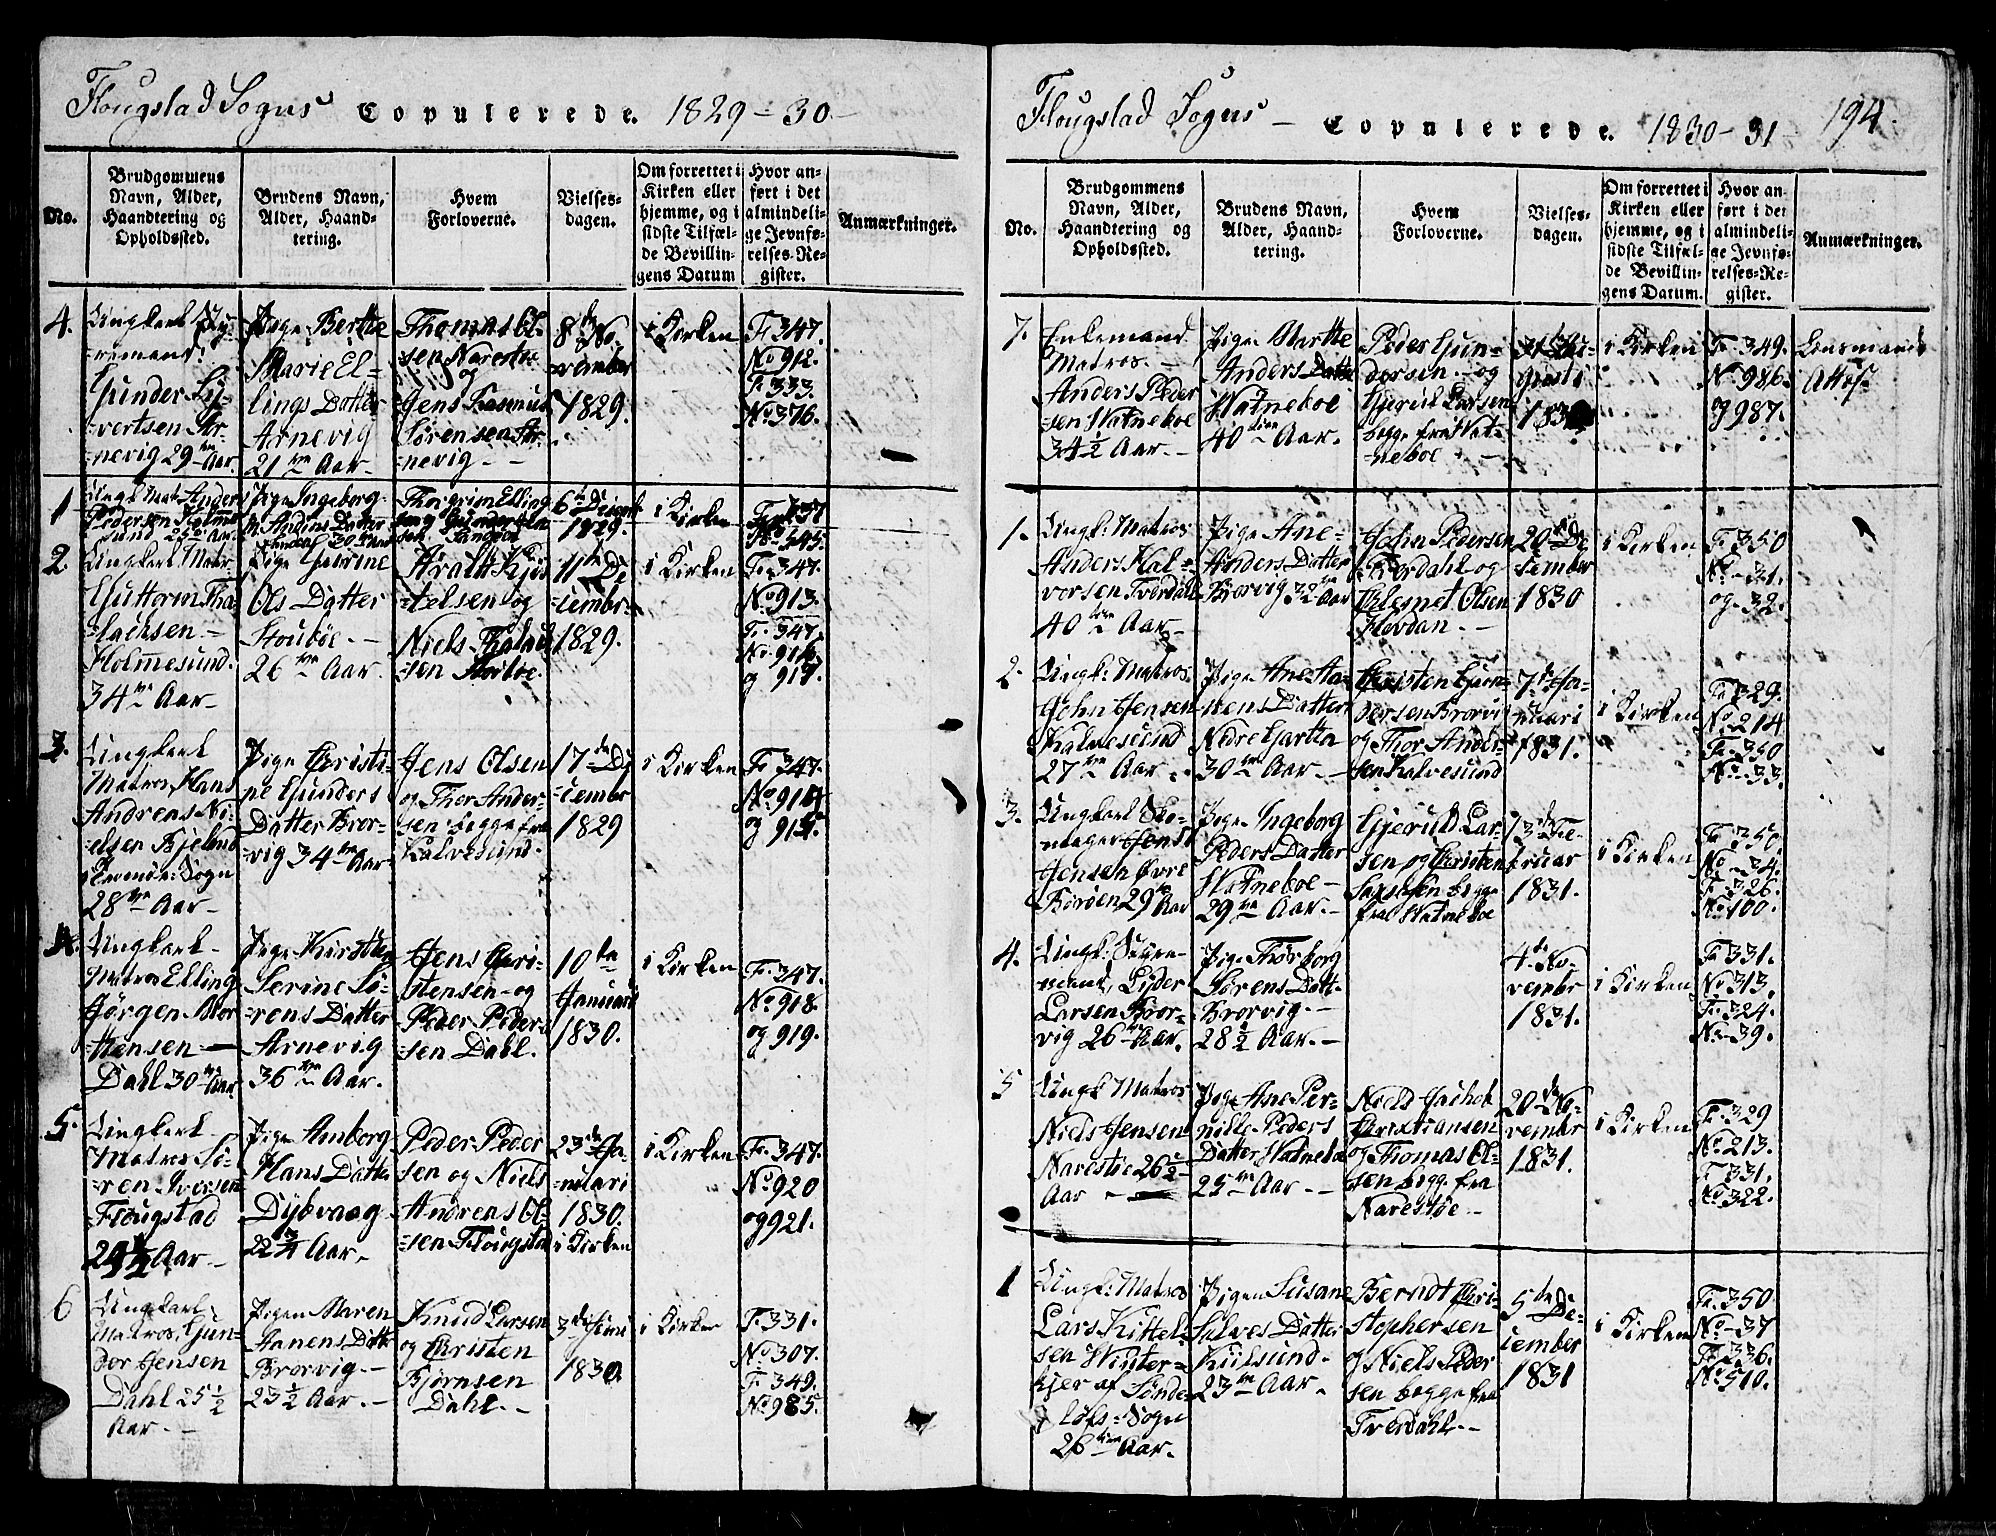 Flougstad Sogns Copulerede. 1829-30.-
No.
Brudgommens
Navn, Alder,
Haandtering og
Opholdssted.
Brudens Navn,
Alder, Haand-
tering.
Hvem
Forloverne.
Vielses-
dagen.
Om forrettet i
Kirken eller
hjemme, og i
sidste Tilfæl-
de Bevillin-
gens Datum
Hvor an-
ført i det
almindeli-
ge Jevnfø-
relses-Re-
gister.
Anmærkninger.
4.
Ungkarl
Gunder Sy-
vertsen Ar-
nevig 29 Aar.
Pige Berthe
Marie El-
lings Datter
Arnevig
21 Aar-
Thomas Ol-
sen Narestøe
og
Jens Rasmus
Sørensen Ar-
nevig.-
8de No-
vember
1829.
i Kirken
Fr. 347.
No 912.
Fr. 333.
No. 376.
1
Ungk. Mat. Anders
Pedersen Holme-
sund 25 Aar.
Pige Ingeborg
Datter
30 Aar
Thorgrim Elling-
6te Decemb
1829.
i Kirken
No 545.
2.
Ungkarl Matr.
Guttorm Tha-
lachsen-
Holmesund.
34 Aar-
Pige Gurine
Ols Datter
Stouböe.-
26 Aar.
Aralt Kjös-
telsen og
Niels Thalach
sen
11te De-
cembr-
1829.
i Kirken
Fr. 347.
No 913.
Fr. 347.
No 916.
og 917.
3.
Ungkarl
Matros, Hans
Andreas Ni-
elsen Bjelland
Sogn
28 Aar-
Pige Christi-
ne Gunders
Datter Bror-
vig 34 Aar-
Jens Olsen
og Thor Ander-
sen begge fra
Kalvesund.
17de De-
cembr
1829
i Kirken
Fr. 347.
No. 914
og 915.
4.
Ungkarl
Matros Elling
Jørgen Mor-
tensen-
Dahl 30 Aar
Pige Kirsten
Serine Sö-
rens Datter
Arnevig
36 Aar.
Jens Chri-
stensen-og
Peder Peder-
sen Dahl.
10de
Januari
1830.
i Kirken
Fr. 347.
No. 918.
og 919.
5.
Ungkarl
Matros Sö-
ren Iversen
Flougstad
24½ Aar.-
Pige Amborg
Hans Datter
Dybvaag
22¼ Aar.
Peder Peder
sen og Niels
Andreas Ol-
sen Flougstad
23de Ja-
nuari
1830.
i Kirken
i Kirken
Fr. 347.
No. 920
og 921.
6
Ungkarl
Matros, Gun-
der Jensen
Dahl 25½
Aar.-
Pigen Maren
Aanens Datt
Brorvig.-
23½ Aar.-
Knud Larsen
og Christen
Bjørnsen
Dahl.-
3de Juni
1830.
i Kirken
Fr. 331.
No 307.
Fr. 349.
No. 985.
Flougstad Sogns- Copulerede. 1830-31 194.
No.
Brudgommens
Navn, Alder,
Haandtering og
Opholdssted.
Brudens Navn,
Alder, Haand-
tering.
Hvem
Forloverne.
Vielses-
dagen.
Om forrettet i
Kirken eller
hjemme, og i
sidste Tilfæl-
de Bevillin-
gens Datum.
Hvor an-
ført i det
almindeli-
ge Jevnfø-
relses-Re-
gister.
Anmærkninger.
7.
Enkemand
Matros.-
Anders Peder
sen Watneboe
34½ Aar.-
Pige Marthe
Anders Datter
Watneboe
40 Aar.
Peder Gun-
dersen-og
Gjerul Larsen
begge fra Wat-
neboe.-
31 Au-
gusti
1830
i Kirken
Fr. 349.
No 986.
og 987.
Lensmands
Attest
1.
Ungk: Matros
Anders Hal-
vorsen Tverdahl
40 Aar.-
Pige Ane-
Anders Datter
Brorvig 32 Aar
John Pedersen
Tverdahl og
Clemet Olsen
20de De-
sember
1830
i Kirken
Fr. 350
No. 31.
og 32.
2.
Ungk: Matros
John Jensen
Kalvesund
27 Aar.
Pige Ane Aa-
nens Datter
Nedre Gartta
30 Aar.-
Christen Gun-
dersen Brorvig
og Thor Ander-
sen Kalvesund
7de Ja-
nuari
1831.
i Kirken
Fr. 329.
No. 214
Fr. 350
No. 33.
3.
Ungkarl Sko-
mager Jens
Jensen Øvre
Børøen 29 Aar
Pige Ingeborg
Peders Datter
Watneboe-
29 Aar.-
Gjeruld Lar-
sen og Christen
begge
fra Watneboe
13de Fe-
bruar
1831.
i Kirken
Fr. 350.
No-34.
Fr. 326.
No. 100.
4.
Ungk: Styre-
mand, Gjeder
Larsen Bror-
vig 26 Aar.
Pige Thorborg
Sørens Datt.
Brorvig.-
28½ Aar.-
4de No-
vembr
1831.
i Kirken
Fr. 331.
No 313.
Fr. 324.
No-39.
5
Ungk Matros
Niels Jensen
Narestöe 26½
Aar-
Pige Ane Per-
nille Peders
Datter Watnebo
25 Aar.-
Niels Jachob
Christiansen
og Thomas Ol-
sen begge fra
Narestöe.-
20de No-
vembr
1831.
i Kirken
Fr. 329
No. 213.
Fr. 331.
No. 322.
1
Ungk: Matros
Lars Kittel-
sen Winter-
kjer af Sönde-
löfs-Sogn
26 Aar.
Pigen Susane
Salves Datter
Kiilsund.
23 Aar.
Berndt Chri-
stophersen
og Niels Peder
sen begge fra
Tverdahl.-
5te De-
cember
1831
i Kirken
Fr. 350
No-37
Fr. 336.
No. 510.